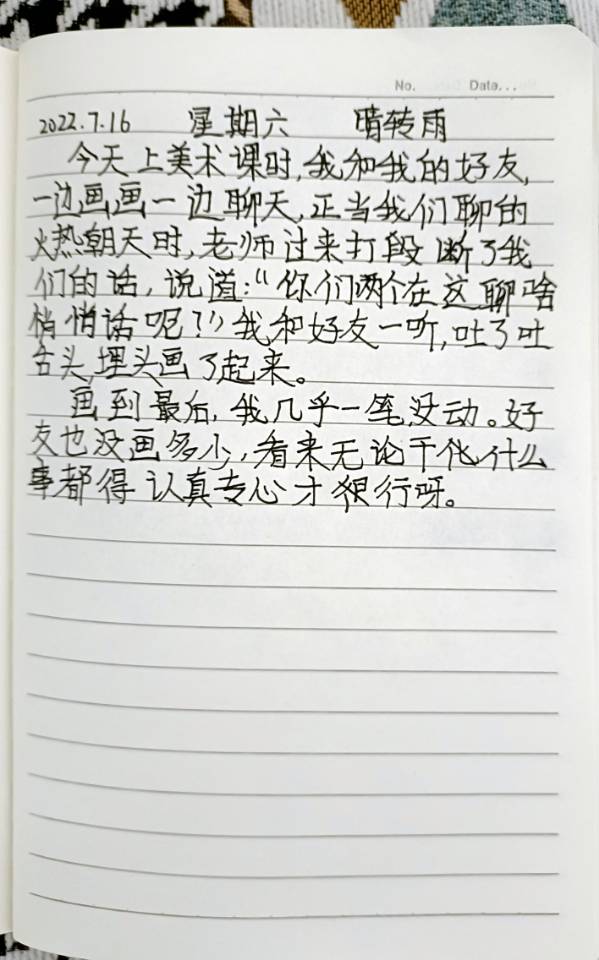 No. Date...
2022.7.16 星期六 晴转雨
今天上美术课时,我和我的好友,
一边画画一边聊天,正当我们聊的
火热朝天时,老师过来打段断了我
们的话,说道:“你们两个在这聊啥
悄悄话呢?”我和好友一听,吐了吐
舌头,埋头画了起来。
画到最后,我几乎一笔没动。好
友也没画多少,看来无论干什么
事都得认真专心才狠行呀。